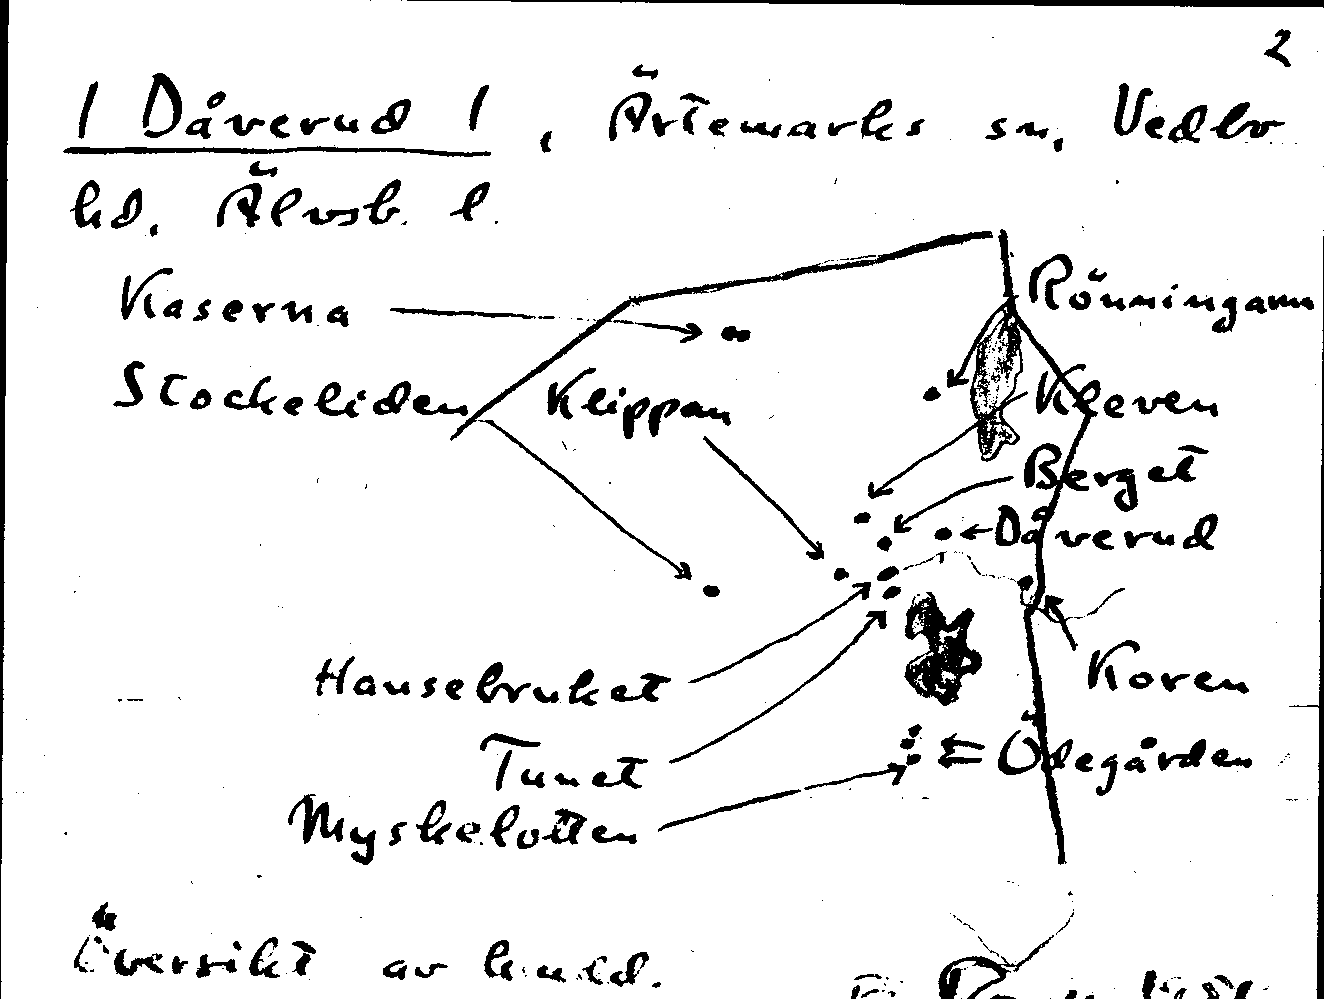 2
1 Dåverud 1, Ärtemarks sn, Vedbo
hd. Älvsb. l.
Kaserna
Rönningarna
Stockeliden
Klippan
Kleven
Berget
Dåverud
Hansebruket
Koren
Tunet
Ödegården
Myskelotten
Översikt av